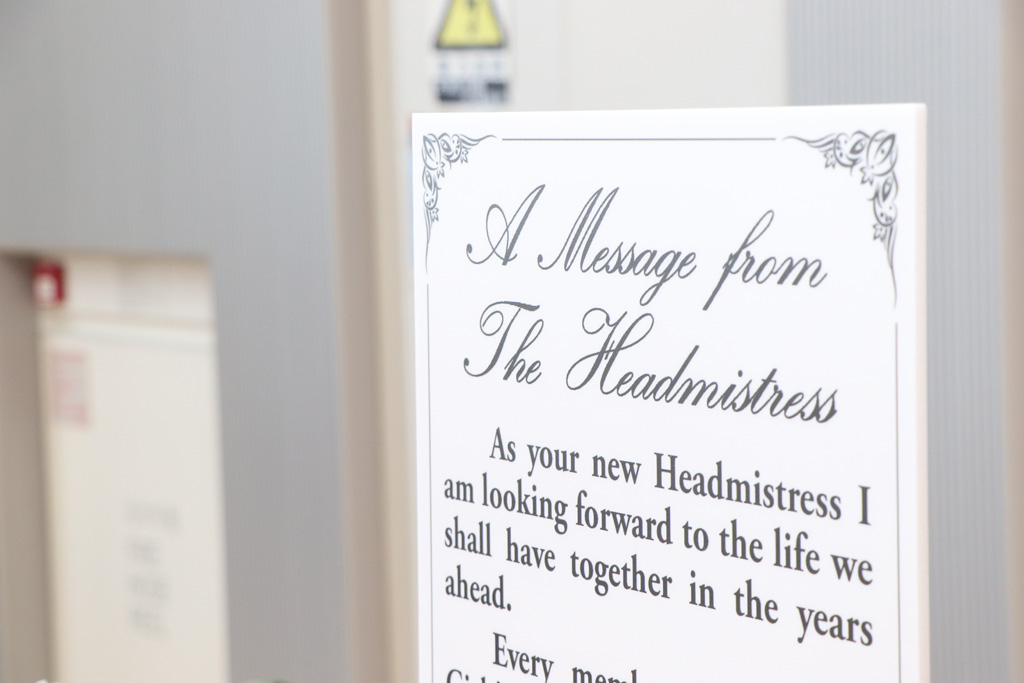 A Message from
The Headmistress
As your new Headmistress I
am looking forward to the life we
shall have together in the years
ahead.
Every